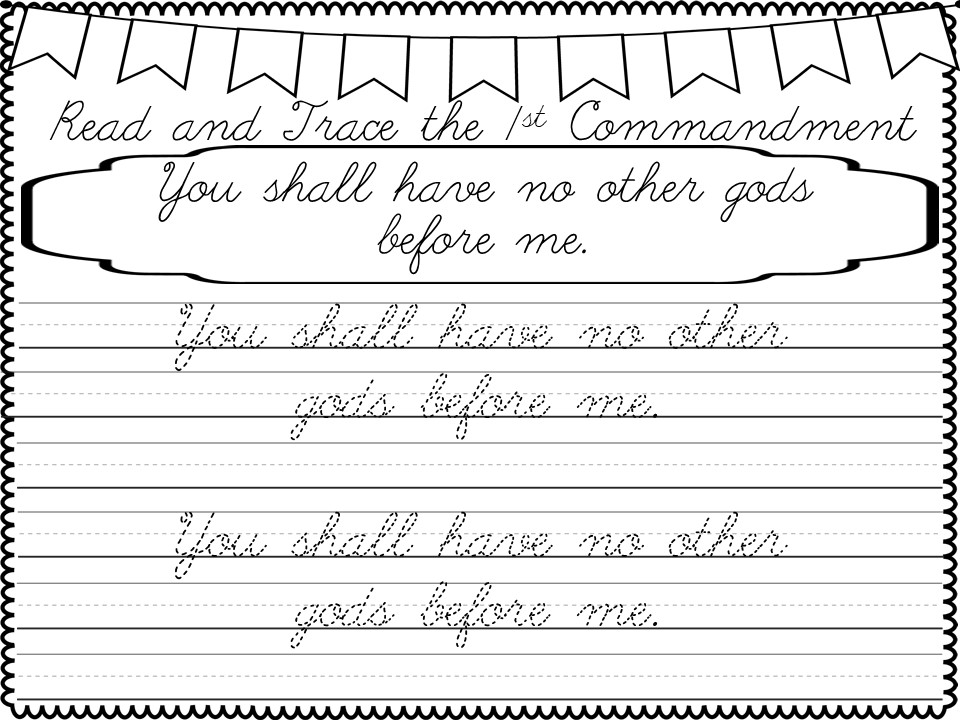 Read and Trace the 1st Commandment
You shall have no other gods
before me.
You shall have no other
gods before me.
You shall have no other
gods before me.